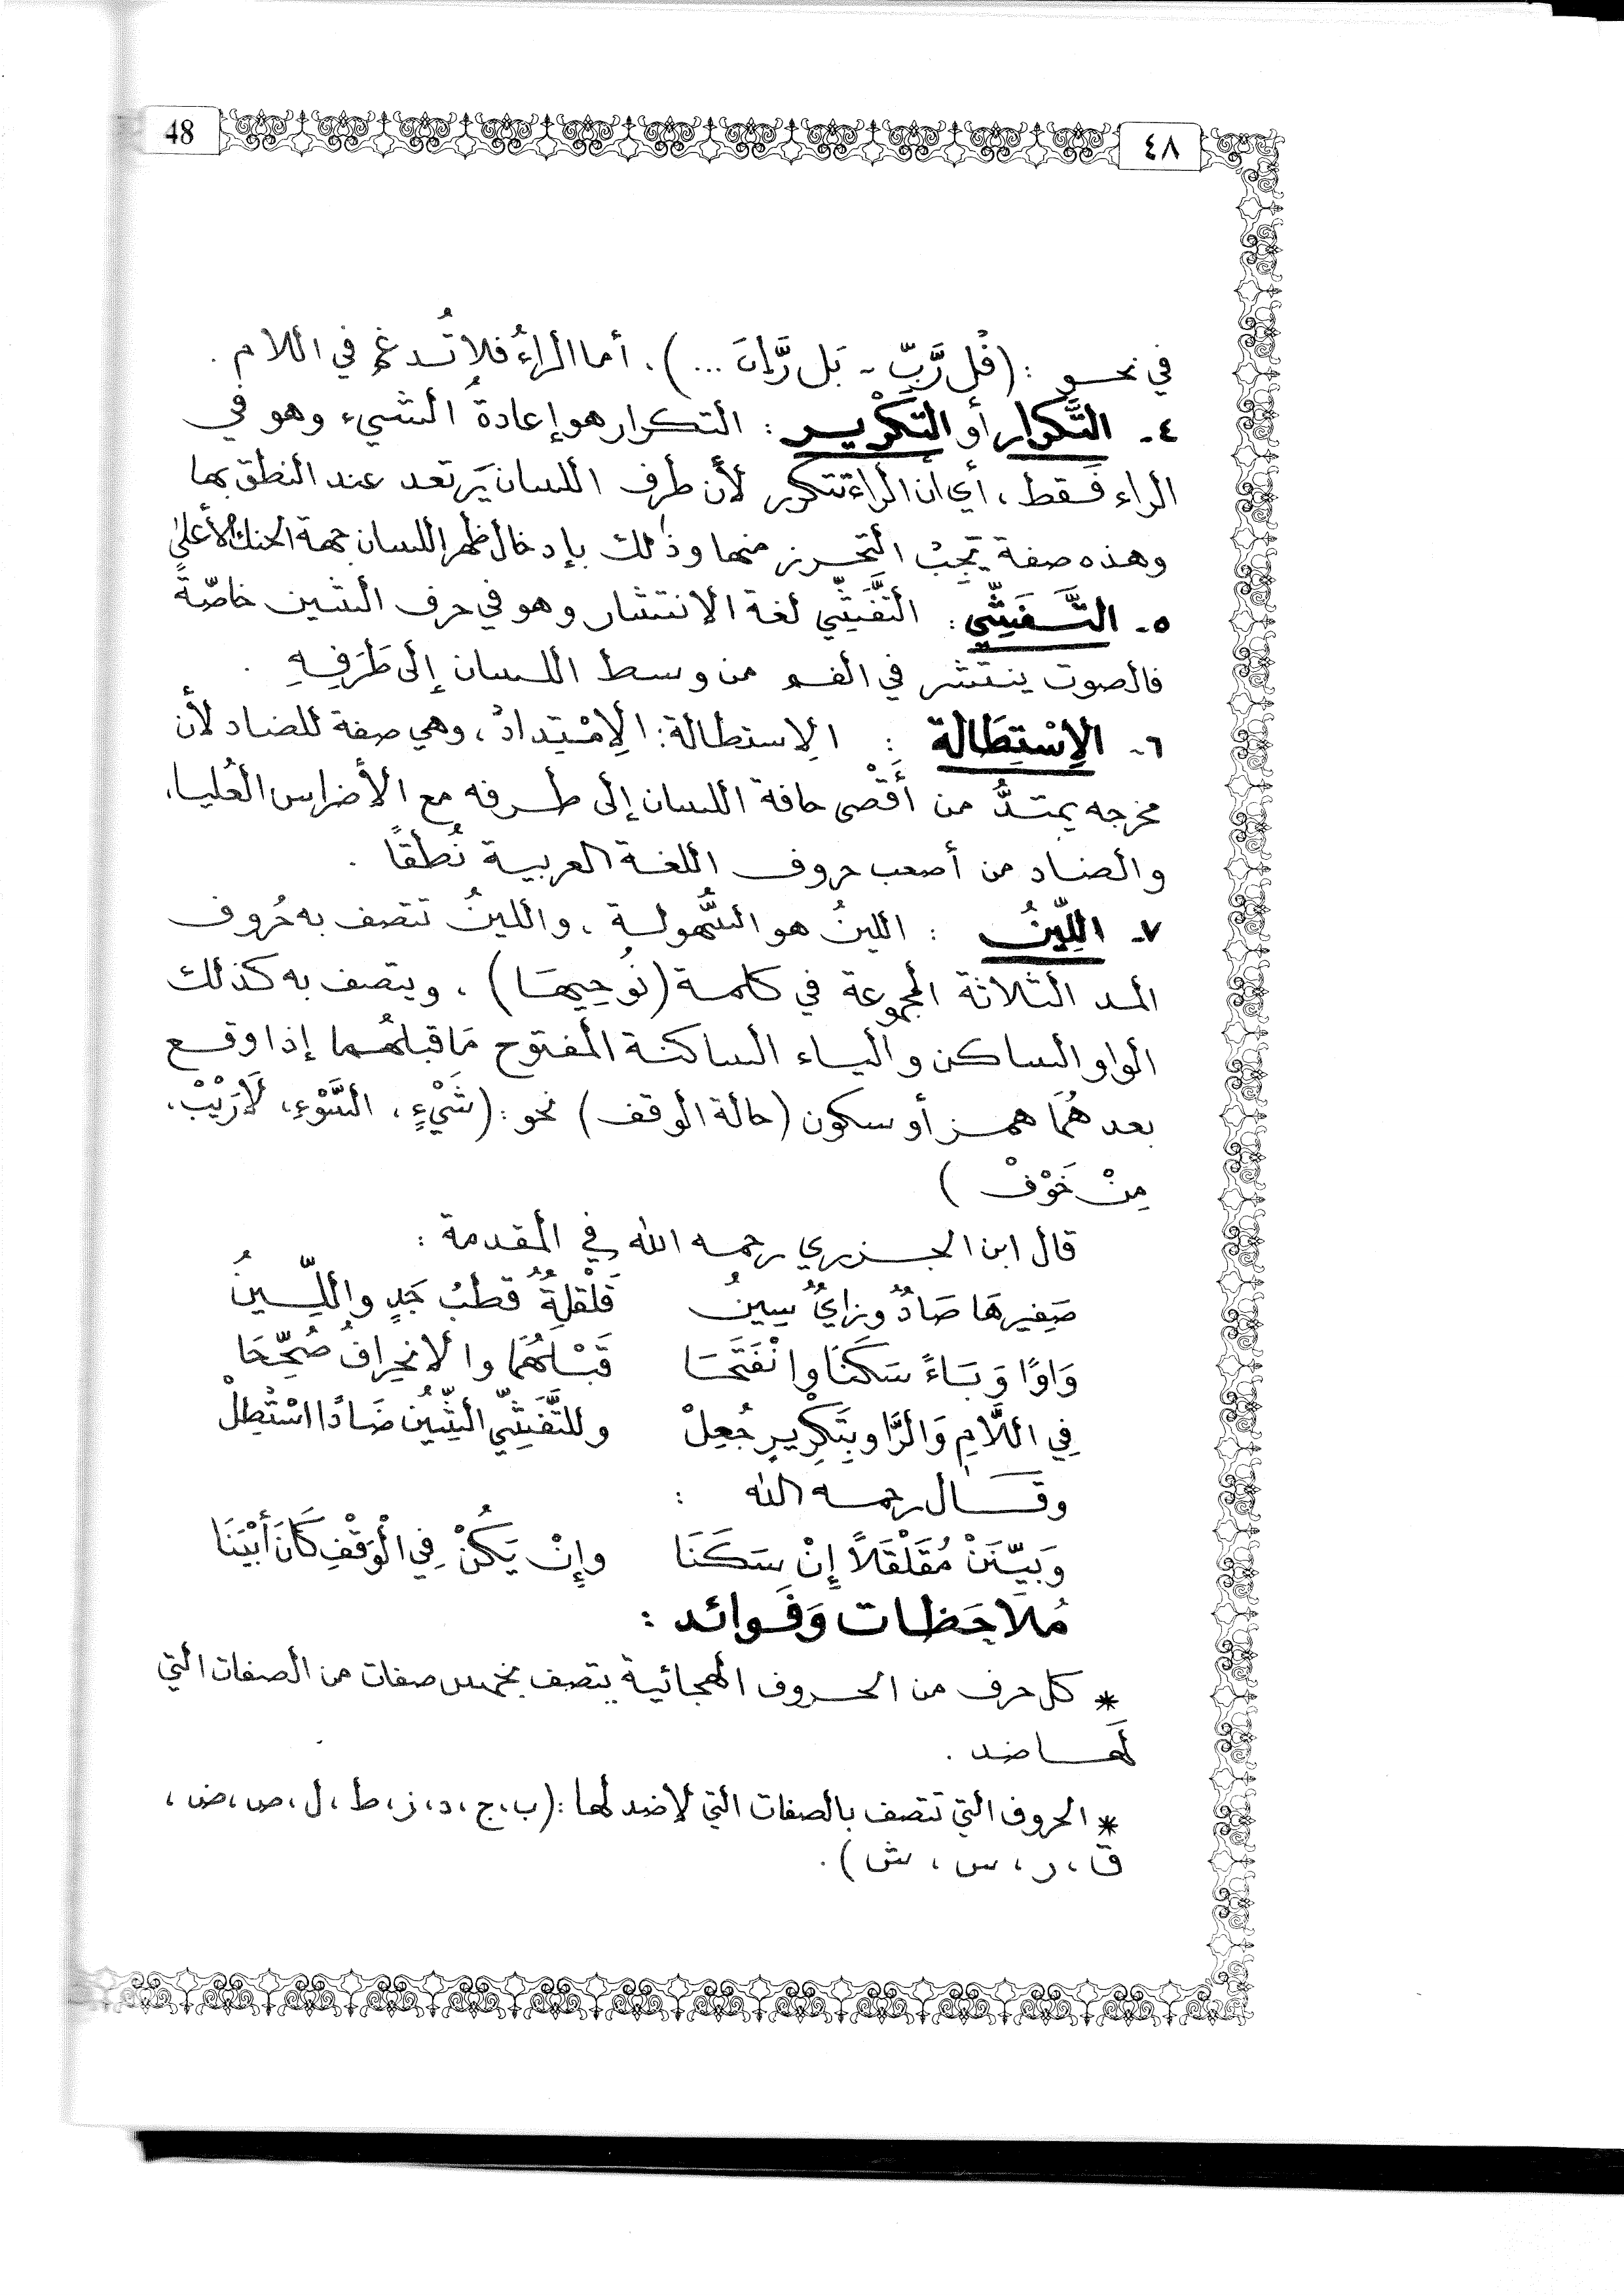 48
٤٨
في نحو : (قُل رَّبِّ - بَل رَّانَ ...) . أما الراءُ فلا تُدغم في اللام .
٤- التَّكرار أو التَّكْرير : التكرار هو إعادةُ الشيء وهو في
الراء فَقط ، أي ان الراء تتكرر لأن طرف اللسان يَرتعد عند النطق بها
وهذه صفة يَجبُ التحرز منها وذلك بإدخال ظهر اللسان جهة الحنك الأعلى
٥- التَّفَشِّي : التَّفَشِّي لغة الانتشار وهو في حرف الشين خاصّةً
فالصوت ينتشر في الفم من وسط اللسان إلى طَرَفِهِ .
٦- الِاسْتِطَالة : الِاستطالة : الِامْتِدادُ ، وهي صفة للضاد لأن
مخرجه يمتدُّ من أَقْصى حافة اللسان إلى طرفه مع الأضراس العُليا،
والضاد من أصعب حروف اللغة العربية نُطقاً .
٧- اللِّينُ : اللينُ هو السُّهولة ، واللينُ تتصف به حُروف
المد الثلاثة المجموعة في كلمة (نُوحِيهَا) ، ويتصف به كذلك
الواو الساكن والياء الساكنة المفتوح مَا قبلهُما إذا وقع
بعدهُمَا همز أو سكون (حالة الوقف) نحو : (شَيْءٍ ، السَّوْءِ، لَارَيْبْ،
مِنْ خَوْفْ )
قال ابن الجزري رحمه الله في المقدمة :
صَفِيرهَا صَادٌ وزايٌ سِينُ قَلْقلةٌ قُطبُ جَدٍ واللِّينُ
وَاوًا وَيَاءً سَكَنَا وانْفَتَحَا قَبْلَهُمَا والانحِرافُ صُحِّحَا
فِي اللَّامِ وَالرَّا وبِتَكْرِيرٍ جُعِلْ وللتَّفَشِّي الشِّينُ ضَادًا اسْتُطِلْ
وقَال رحمه الله :
وَبَيِّنَنْ مُقَلْقَلاً إِنْ سَكَنَا وإِنْ يَكُنْ فِي الْوَقْفِ كَانَ أَبْيَنَا
مُلَاحَظات وَفَوائد :
* كل حرف من الحروف الهجائية يتصف بخمس صفات من الصفات التي
لَها ضد .
* الحروف التي تتصف بالصفات التي لاضد لها : (ب، ج، د، ز، ط، ل، ص، ض،
ق، ر، س، ش) .